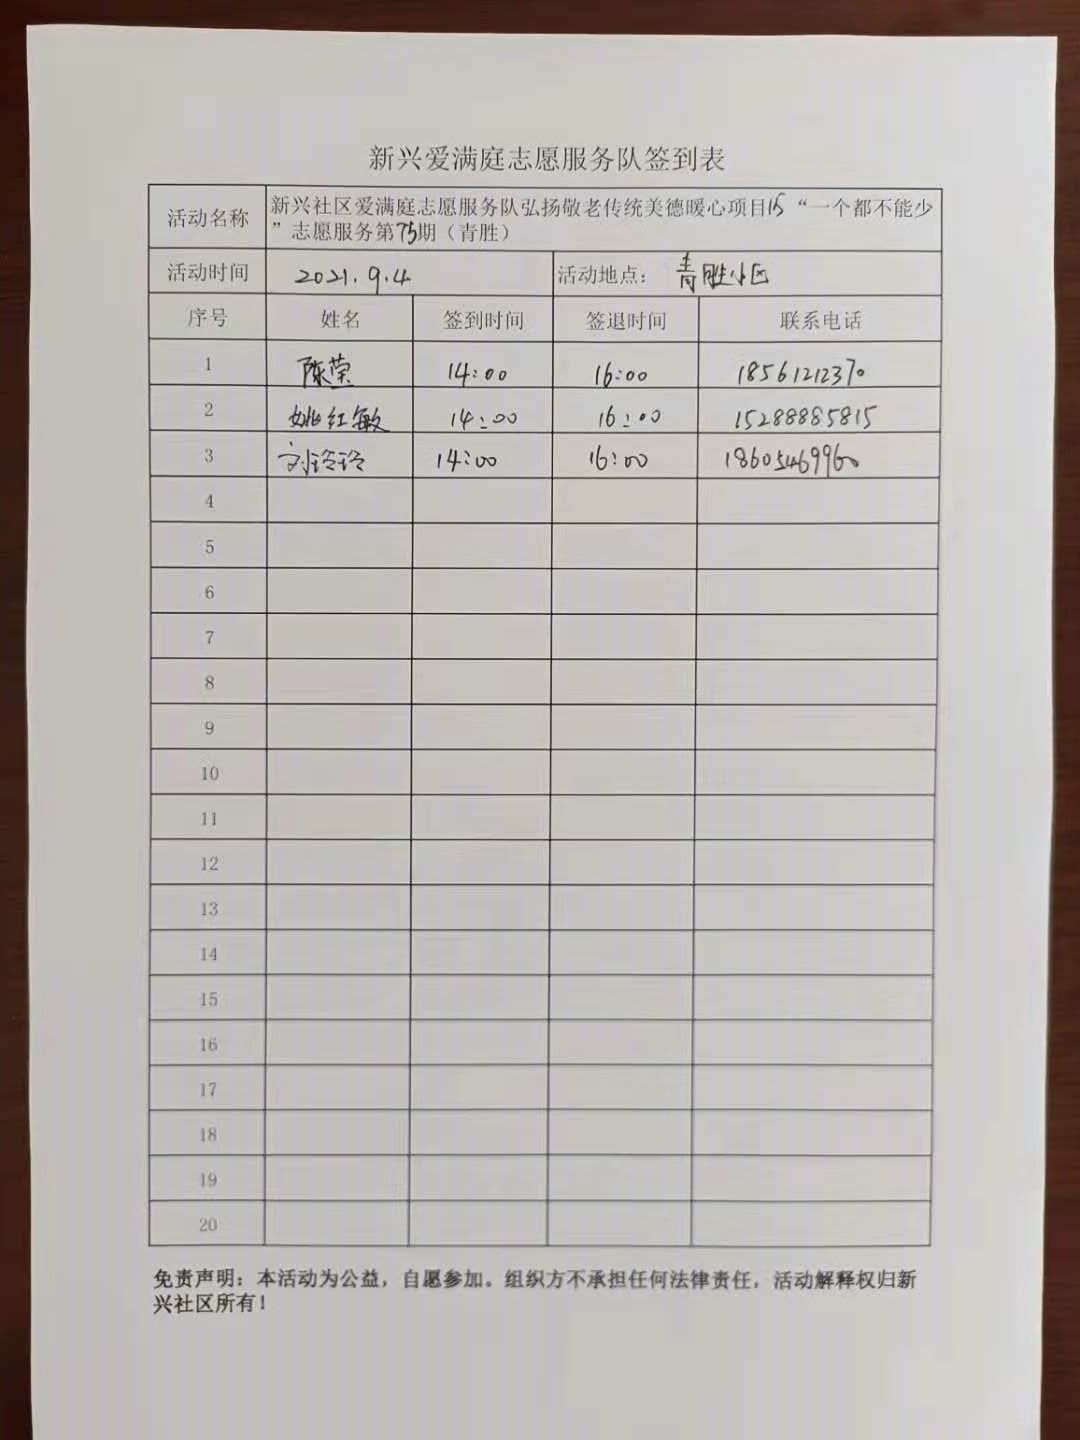 新兴爱满庭志愿服务队签到表
活动名称 新兴社区爱满庭志愿服务队弘扬敬老传统美德暖心项目15“一个都不能少
”志愿服务第75期（青胜）
活动时间 2021.9.4 活动地点： 青胜小区
序号 姓名 签到时间 签退时间 联系电话
1 陈荣 14:00 16:00 18561212370
2 姚红敏 14:00 16:00 15288885815
3 刘玲玲 14:00 16:00 18605469960
4
5
6
7
8
9
10
11
12
13
14
15
16
17
18
19
20
免责声明：本活动为公益，自愿参加。组织方不承担任何法律责任，活动解释权归新
兴社区所有！